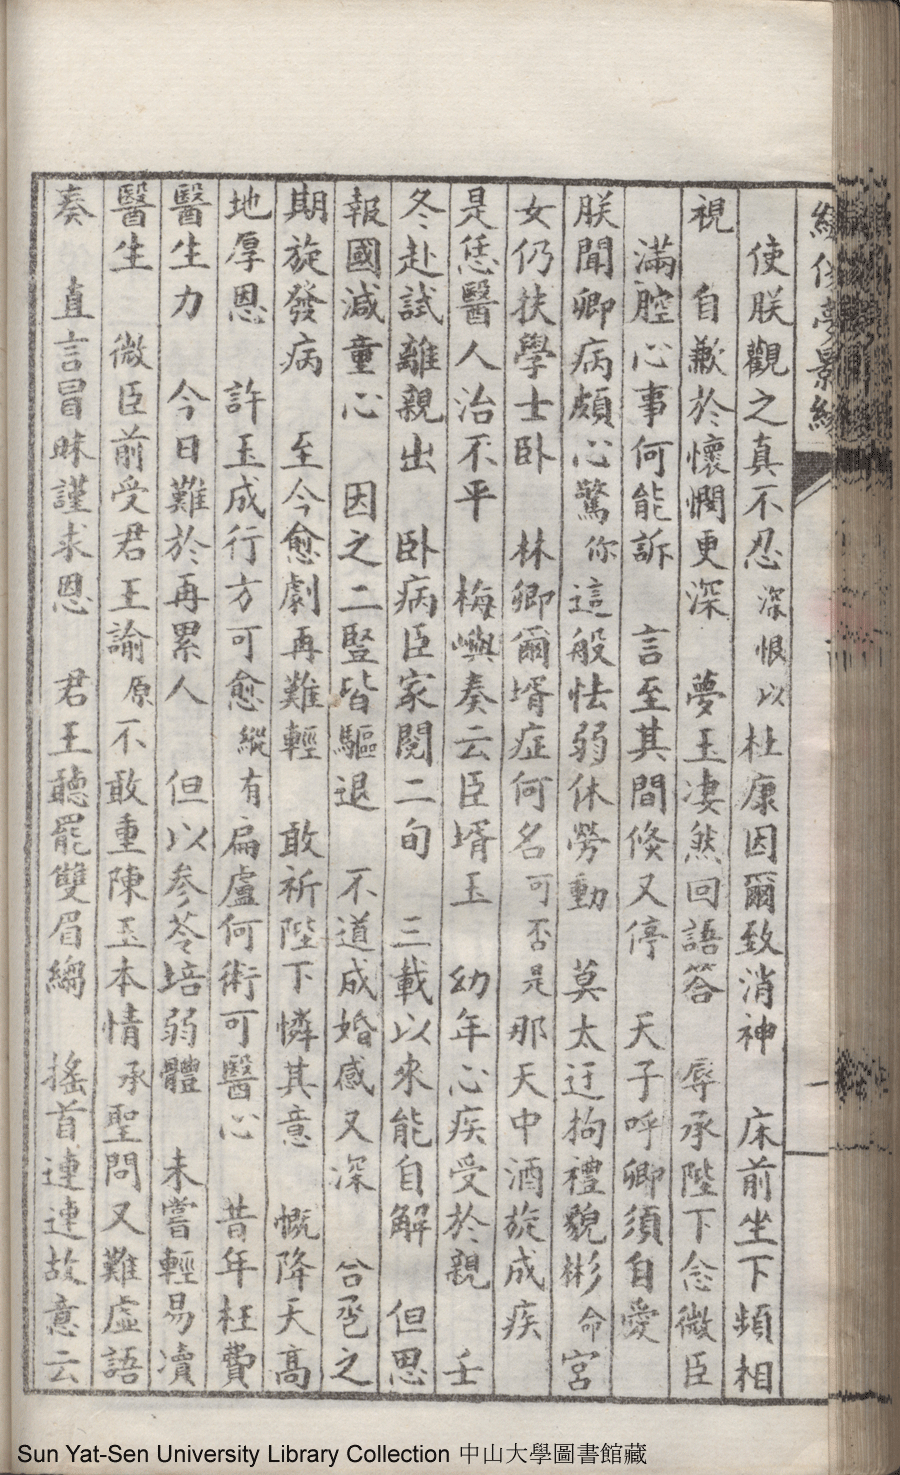 使朕觀之真不忍 深恨以杜康因爾致消神 床前坐下頻相
視 自歉於懷憫更深 夢玉凄然回語答 辱承陛下念微臣
滿腔心事何能訴 言至其間倏又停 天子呼卿須自愛
朕聞卿病頗心驚 你這般怯弱休勞動 莫太迂拘禮貌彬 命宮
女仍扶學士卧 林卿爾壻症何名 可否是那天中酒旋成疾
是恁醫人治不平 梅嶼奏云臣壻玉 幼年心疾受於親 壬
冬赴試離親出 卧病臣家閱二旬 三載以來能自解 但思
報國減童心 因之二豎皆驅退 不道成婚感又深 合巹之
期旋發病 至今愈劇再難輕 敢祈陛下憐其意 慨降天高
地厚恩 許玉成行方可愈 縱有扁盧何術可醫心 昔年枉費
醫生力 今日難於再累人 但以參苓培弱體 未嘗輕易凟
醫生 微臣前受君王諭 原不敢重陳玉本情 承聖問又難虛語
奏 直言冒昧謹求恩 君王聽罷雙眉縐 搖首連連故意云
Sun Yat-Sen University Library Collection 中山大學圖書館藏